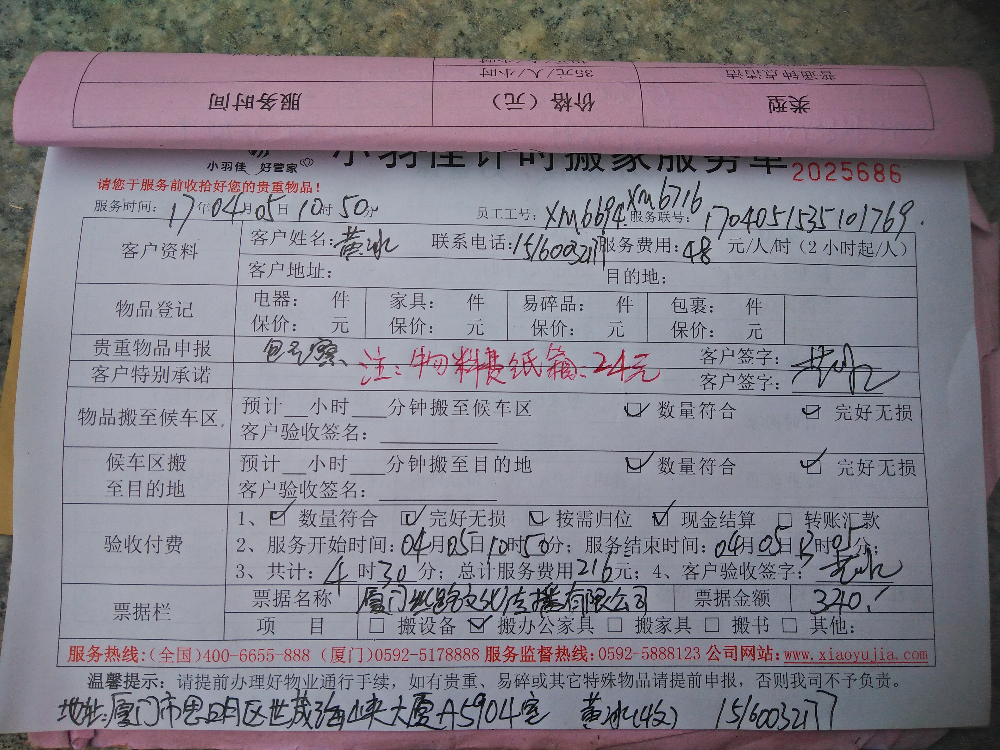 普通钟点清洁 35元/人/小时
类型 价格（元） 服务时间
小羽佳 好管家
小羽佳计时搬家服务单 2025686
请您于服务前收拾好您的贵重物品！
服务时间：17年04月05日10时50分 员工工号：XM6694 XM6716 服务联号：1704051535101769
客户资料 客户姓名：黄冰 联系电话：15160032177 服务费用：48 元/人/时（2小时起/人）
客户地址： 目的地：
物品登记 电器： 件 家具： 件 易碎品： 件 包裹： 件
保价： 元 保价： 元 保价： 元 保价： 元
贵重物品申报 客户签字：
注：物料费纸箱：24元
客户特别承诺 客户签字：
物品搬至候车区 预计__小时___分钟搬至候车区 数量符合 完好无损
客户验收签名：
候车区搬至目的地 预计__小时___分钟搬至目的地 数量符合 完好无损
客户验收签名：
验收付费 1、 数量符合 完好无损 按需归位 现金结算 转账汇款
2、服务开始时间：04月05日10时50分；服务结束时间：04月05日 时05分；
3、共计：4时30分；总计服务费用216元；4、客户验收签字：黄冰
票据栏 票据名称 厦门丝路文化传播有限公司 票据金额 340.
项 目 搬设备 搬办公家具 搬家具 搬书 其他：
服务热线:(全国)400-6655-888 (厦门)0592-5178888 服务监督热线:0592-5888123 公司网站:www.xiaoyujia.com
温馨提示：请提前办理好物业通行手续，如有贵重、易碎或其它特殊物品请提前申报，否则我司不予负责。
地址：厦门市思明区世茂海峡大厦A5904室 黄冰(收) 15160032177